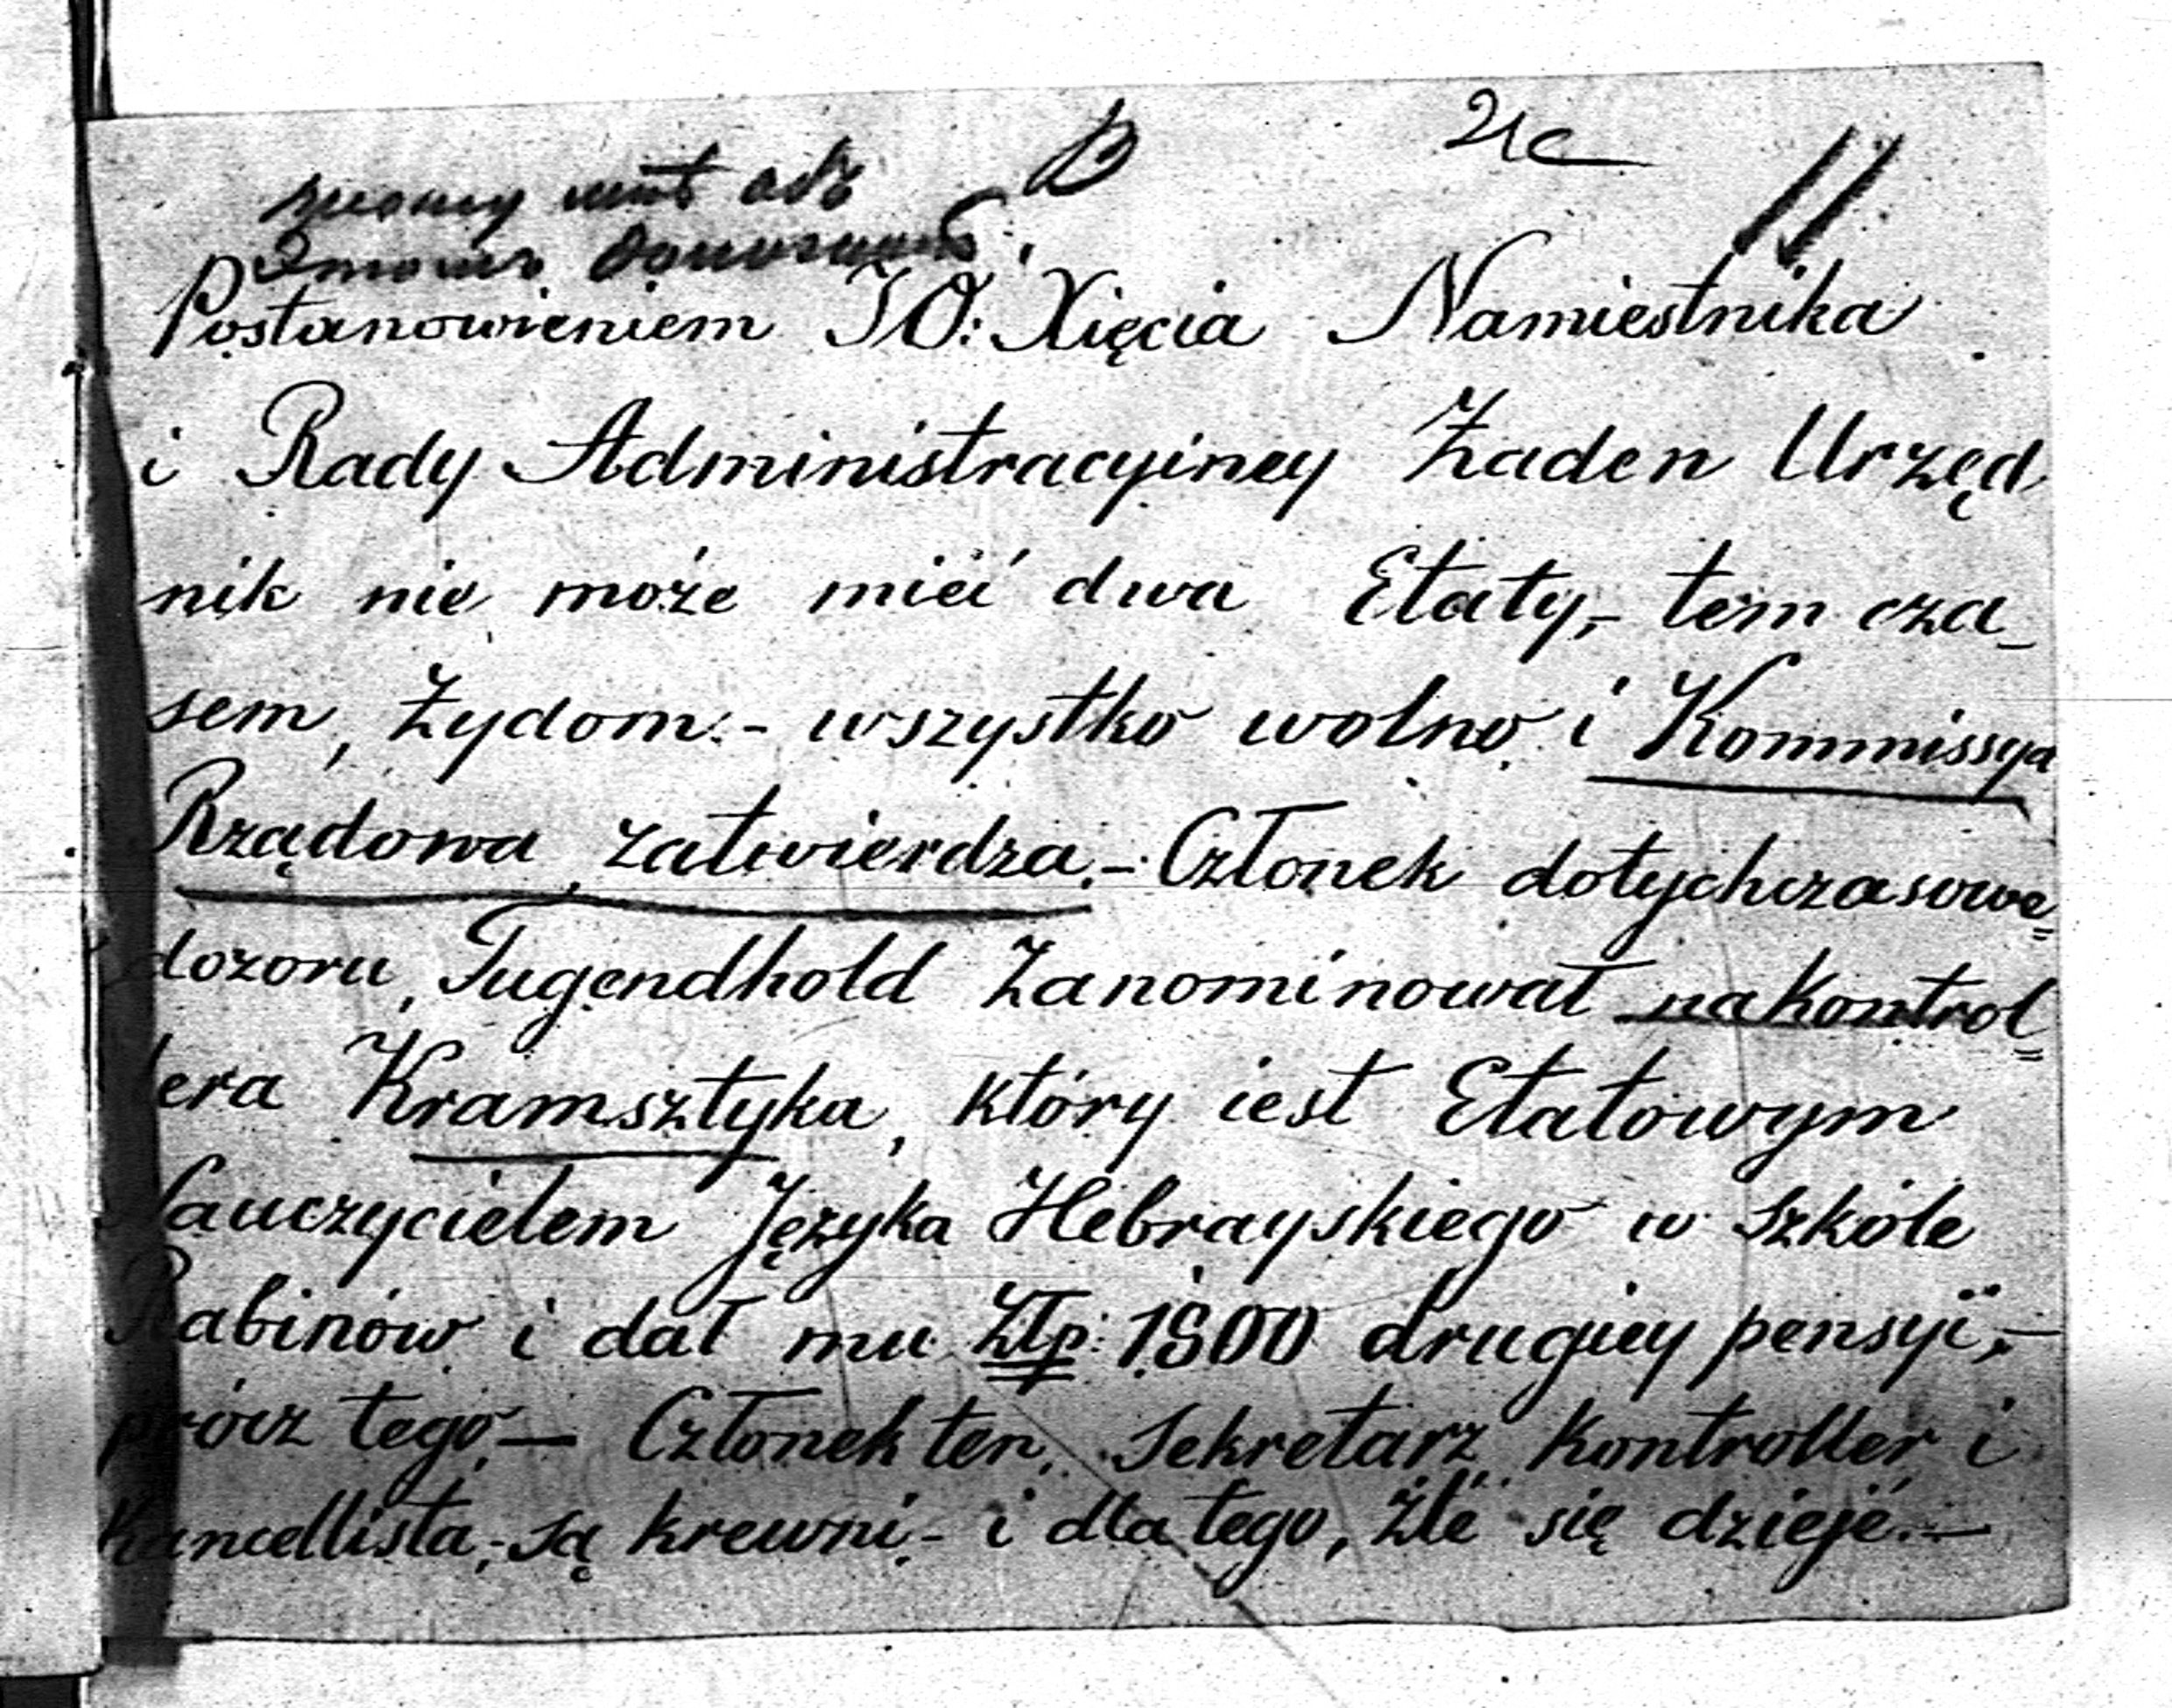 B
11
Postanowieniem JO: Xięcia Namiestnika
i Rady Administracyiney Żaden Urzęd
nik nie może mieć dwa Etaty,- tem cza_
sem, Żydom.- wszystko wolno i Kommissya
Rządowa zatwierdza.- Członek dotychczasowe=
dozoru, Tugendhold Zanominował na Kontrol=
lera Kramsztyka, który iest Etatowym
Nauczycielem Języka Hebrayskiego w Szkóle
Rabinów i dał mu Złp: 1800 drugiey pensyi,-
prócz tego,— Członek ten, Sekretarz Kontroller i
Kancellista,- są krewni,- i dla tego, źle się dzieje.—